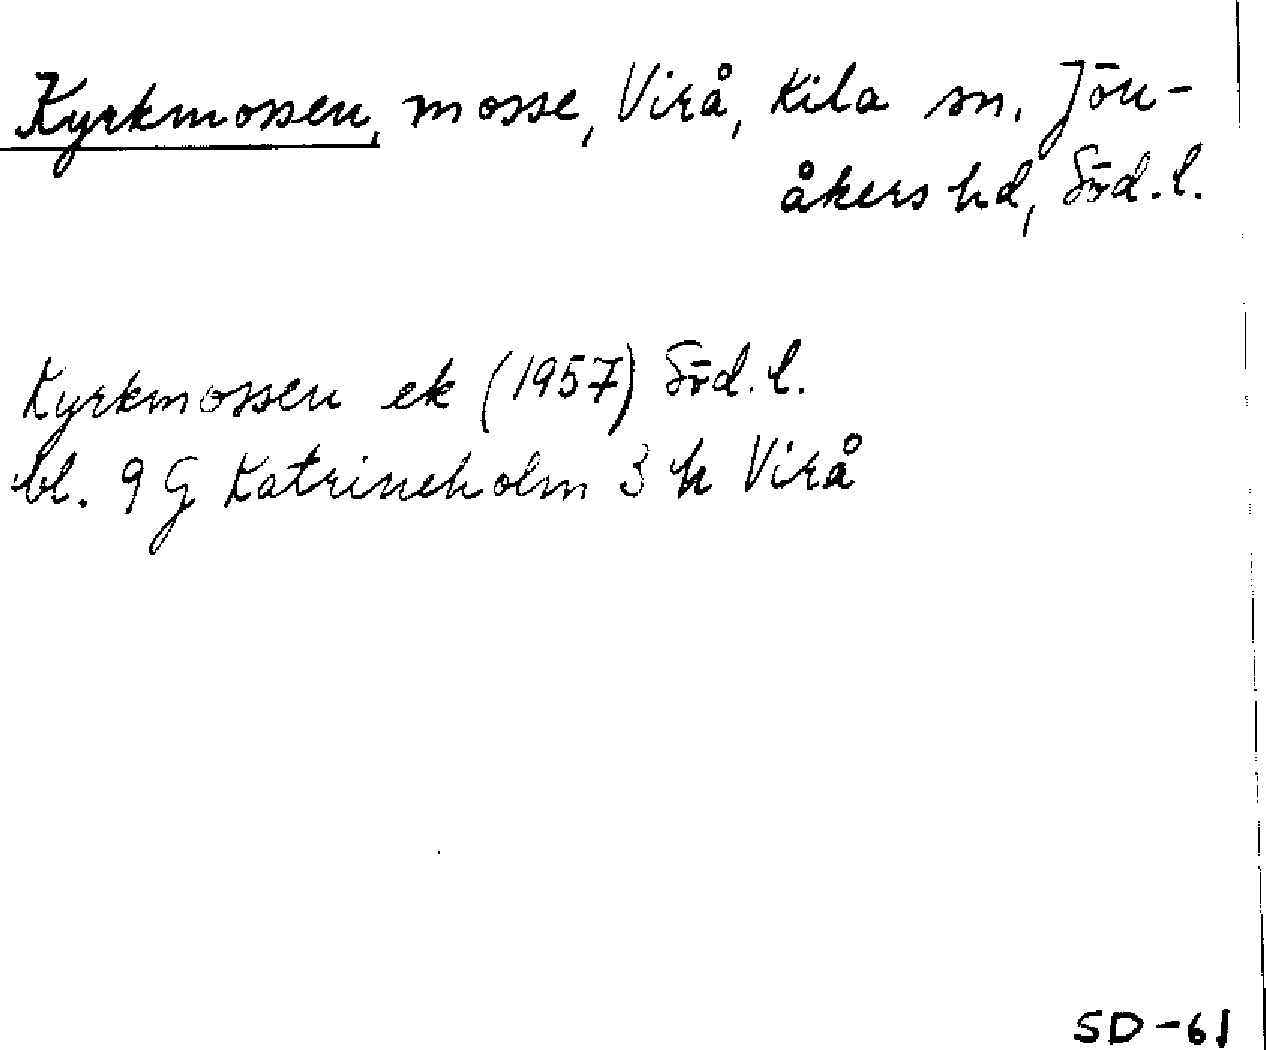 Kyrkmossen, mosse, Virå, Kila sn. Jön-
åkers hd, Söd.l.
Kyrkmossen ek (1957) Söd.l.
bl. 9 G Katrineholm 3 h Virå
SD-61